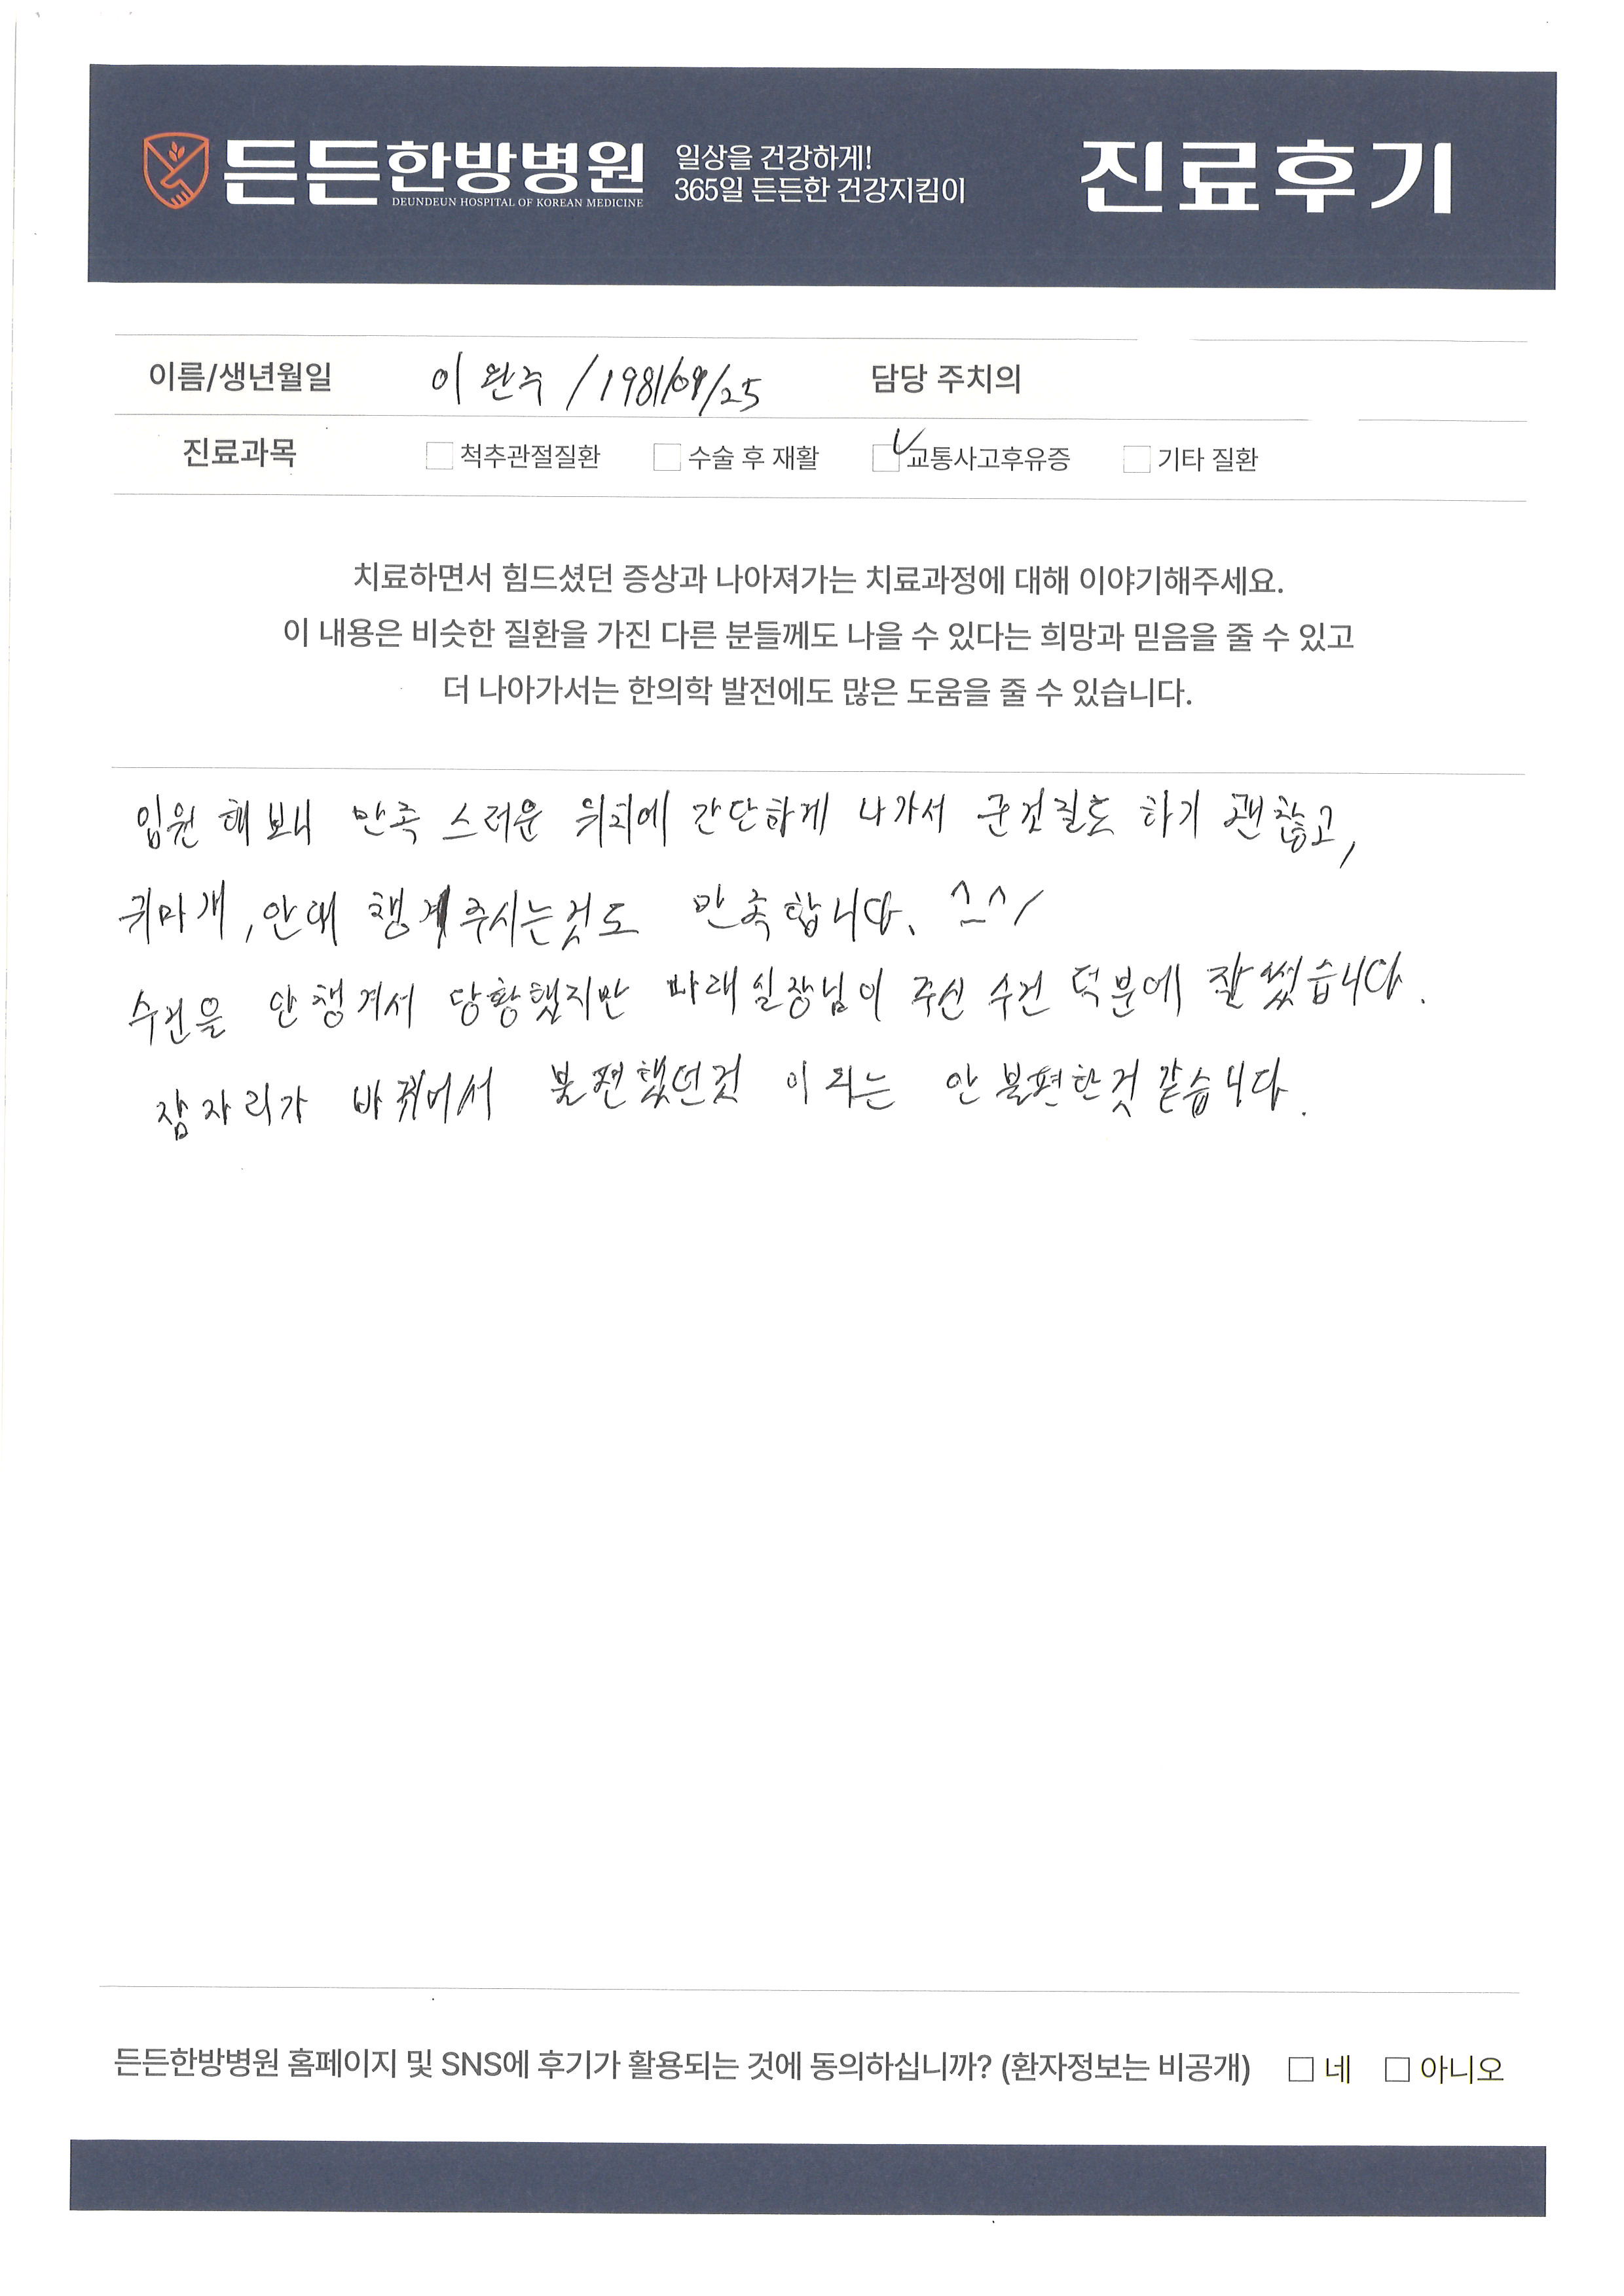 든든한방병원
DEUNDEUN HOSPITAL OF KOREAN MEDICINE
일상을 건강하게!
365일 든든한 건강지킴이
진료후기
이름/생년월일 이완주 / 1981/09/25 담당 주치의
진료과목 척추관절질환 수술 후 재활 교통사고후유증 기타 질환
치료하면서 힘드셨던 증상과 나아져가는 치료과정에 대해 이야기해주세요.
이 내용은 비슷한 질환을 가진 다른 분들께도 나을 수 있다는 희망과 믿음을 줄 수 있고
더 나아가서는 한의학 발전에도 많은 도움을 줄 수 있습니다.
입원 해보니 만족 스러운 위치에 간단하게 나가서 군것질도 하기 괜찮고,
귀마개, 안대 챙겨주시는것도 만족합니다. ^_^/
수건을 안챙겨서 당황했지만 미래실장님이 주신 수건 덕분에 잘썼습니다.
잠자리가 바뀌어서 불편했던것 이외는 안불편한것 같습니다.
든든한방병원 홈페이지 및 SNS에 후기가 활용되는 것에 동의하십니까? (환자정보는 비공개) 네 아니오